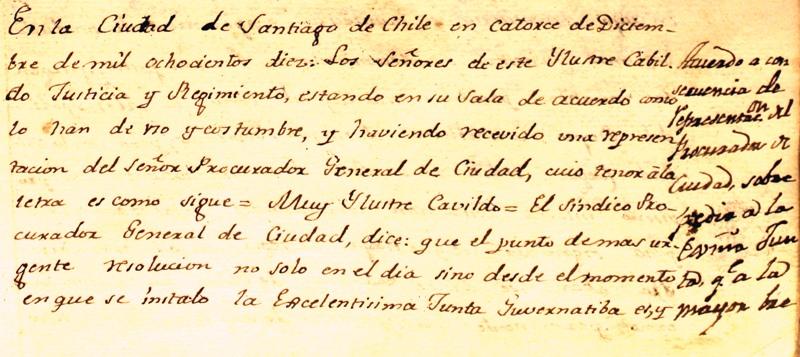 En la Ciudad de Santiago de Chile en catorce de Diciem-
bre de mil ochocientos diez: Los Señores de este Ylustre Cabil-
do Justicia y Regimiento, estando en su sala de acuerdo como
lo han de uso y costumbre, y haviendo recevido una represen
tacion del Señor Procurador General de Ciudad, cuio tenor à la
letra es como sigue = Muy Ylustre Cavildo = El síndico Pro-
curador General de Ciudad, dice: que el punto de mas ur-
gente resolucion no solo en el dia sino desde el momento
en que se instaló la Excelentisima Junta Guvernatiba es, y
Acuerdo a con
sequencia de
representac.on del
Procurador de
Ciudad, sobre
pedir a la
Exma Jun
ta, q.e a la
mayor bre